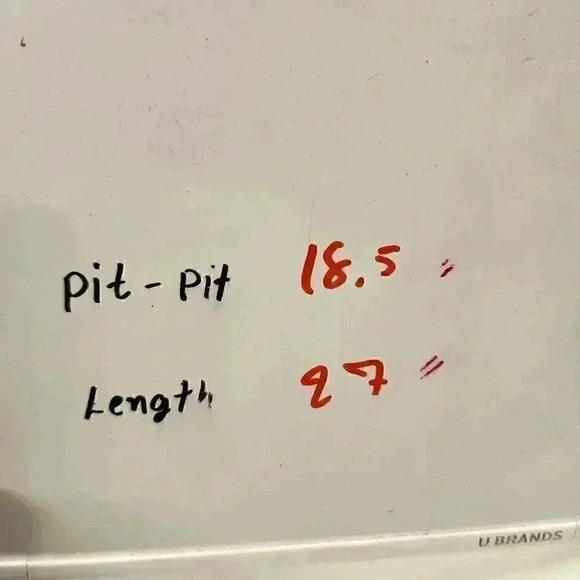 Pit - Pit 18.5 "
Length 27 "
U BRANDS